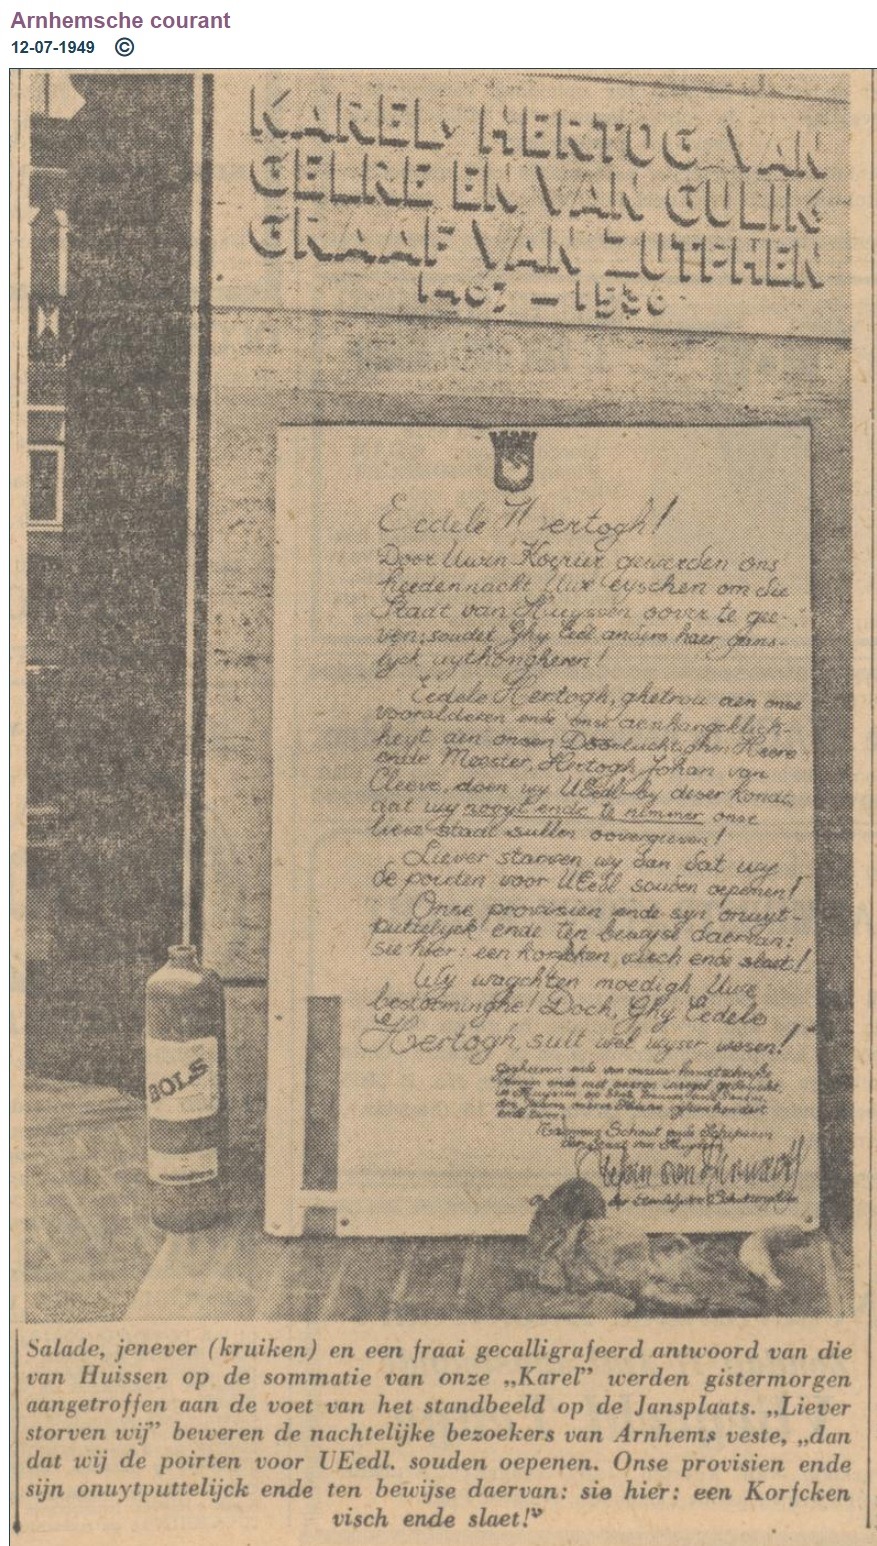 Arnhemsche courant
12-07-1949 ©
KAREL, HERTOG VAN
GELRE EN VAN GULIK
GRAAF VAN ZUTPHEN
Eedele Hertogh!
Door Uwen Koerier gewerden ons
heedennacht Uwe eyschen om die
Staat van Huyssen oover te gee-
ven; soudet Ghy Eedl anders haer gans-
lyck uythongheren!
Eedele Hertogh, ghetrou aen onse
vooralderen ende onse aenhangklick-
heyt aen onsen Doorluchtighen Heere
ende Meester, Hertogh Johan van
Cleeve, doen wy UEedl by deser kondt,
dat wy nooyt ende te nimmer onse
lieve stadt sullen oovergieven!
Liever storven wy dan dat wy
de poirten voor UEedl souden oepenen!
Onse provisien ende syn onuyt-
puttelyck ende ten bewyse daervan:
sie hier: een korfcken visch ende slaet!
Wy wagchten moedigh Uwe
bestorminghe! Doch, Ghy Eedele
Hertogh, sult wel wyser wesen!
Schout ende Schepenen
der Staat van Huyssen
BOLS
Salade, jenever (kruiken) en een fraai gecalligrafeerd antwoord van die
van Huissen op de sommatie van onze „Karel” werden gistermorgen
aangetroffen aan de voet van het standbeeld op de Jansplaats. „Liever
storven wij” beweren de nachtelijke bezoekers van Arnhems veste, „dan
dat wij de poirten voor UEedl. souden oepenen. Onse provisien ende
sijn onuytputtelijck ende ten bewijse daervan: sie hier: een Korfcken
visch ende slaet!”